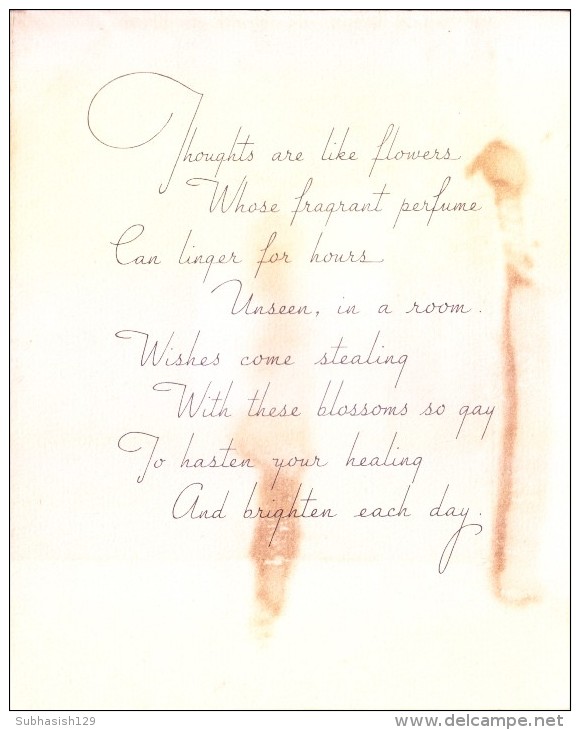 Thoughts are like flowers
Whose fragrant perfume
Can linger for hours
Unseen, in a room.
Wishes come stealing
With these blossoms so gay
To hasten your healing
And brighten each day.
Subhasish129
delcampe.net